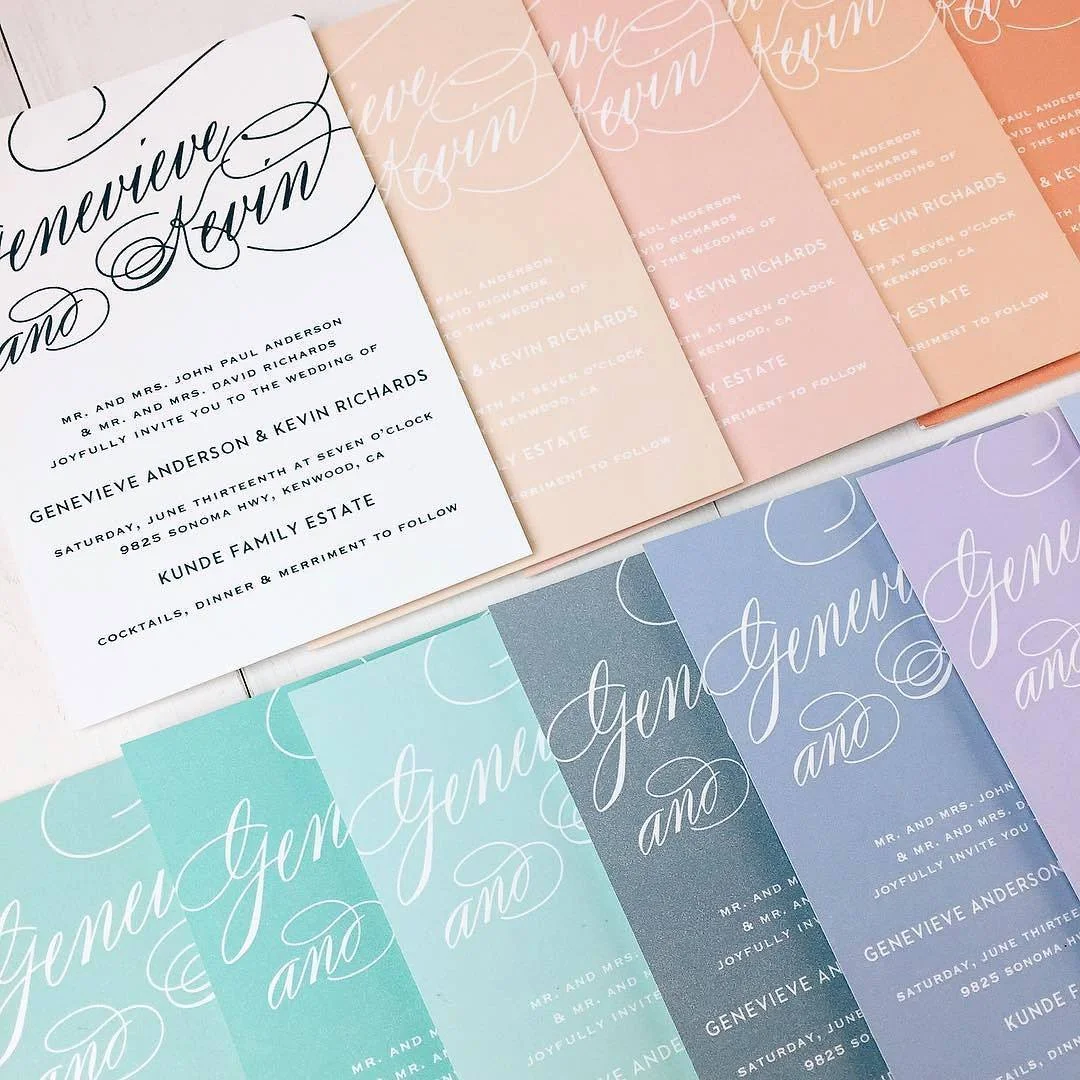 Genevieve
and Kevin
MR. AND MRS. JOHN PAUL ANDERSON
& MR. AND MRS. DAVID RICHARDS
JOYFULLY INVITE YOU TO THE WEDDING OF
GENEVIEVE ANDERSON & KEVIN RICHARDS
SATURDAY, JUNE THIRTEENTH AT SEVEN O'CLOCK
9825 SONOMA HWY, KENWOOD, CA
KUNDE FAMILY ESTATE
COCKTAILS, DINNER & MERRIMENT TO FOLLOW
ieve
Kevin
PAUL ANDERSON
DAVID RICHARDS
TO THE WEDDING OF
& KEVIN RICHARDS
NTH AT SEVEN O'CLOCK
KENWOOD, CA
ESTATE
ERRIMENT TO FOLLOW
eve
Kevin
PAUL ANDERSON
DAVID RICHARDS
TO THE WEDDING OF
& KEVIN RICHARDS
TH AT SEVEN O'CLOCK
KENWOOD, CA
LY ESTATE
ERRIMENT TO FOLLOW
Kevin
PAUL ANDERSON
DAVID RICHARDS
TO THE WEDDING OF
& KEVIN RICHARDS
TH AT SEVEN O'CLOCK
KENWOOD, CA
ESTATE
RRIMENT TO FOLLOW
PAUL ANDERSON
DAVID RICHARDS
TO THE WEDDING OF
& KEVIN
Genev
and
Gen
and
MR. AND M
Genev
and
MR. AND MRS.
& MR. AND
JOYFULLY INV
GENEVIEVE ANDE
SATURDAY, JUNE
9825 SON
Gen
and
MR. AND M
& MR. AN
JOYFULLY IN
GENEVIEVE AN
SATURDAY, JUNE
9825 SO
Genev
and
MR. AND MRS. JOHN
& MR. AND MRS. D
JOYFULLY INVITE YOU
GENEVIEVE ANDERSON
SATURDAY, JUNE THIRTEE
9825 SONOMA H
KUNDE F
COCKTAILS, DINNE
Gene
and